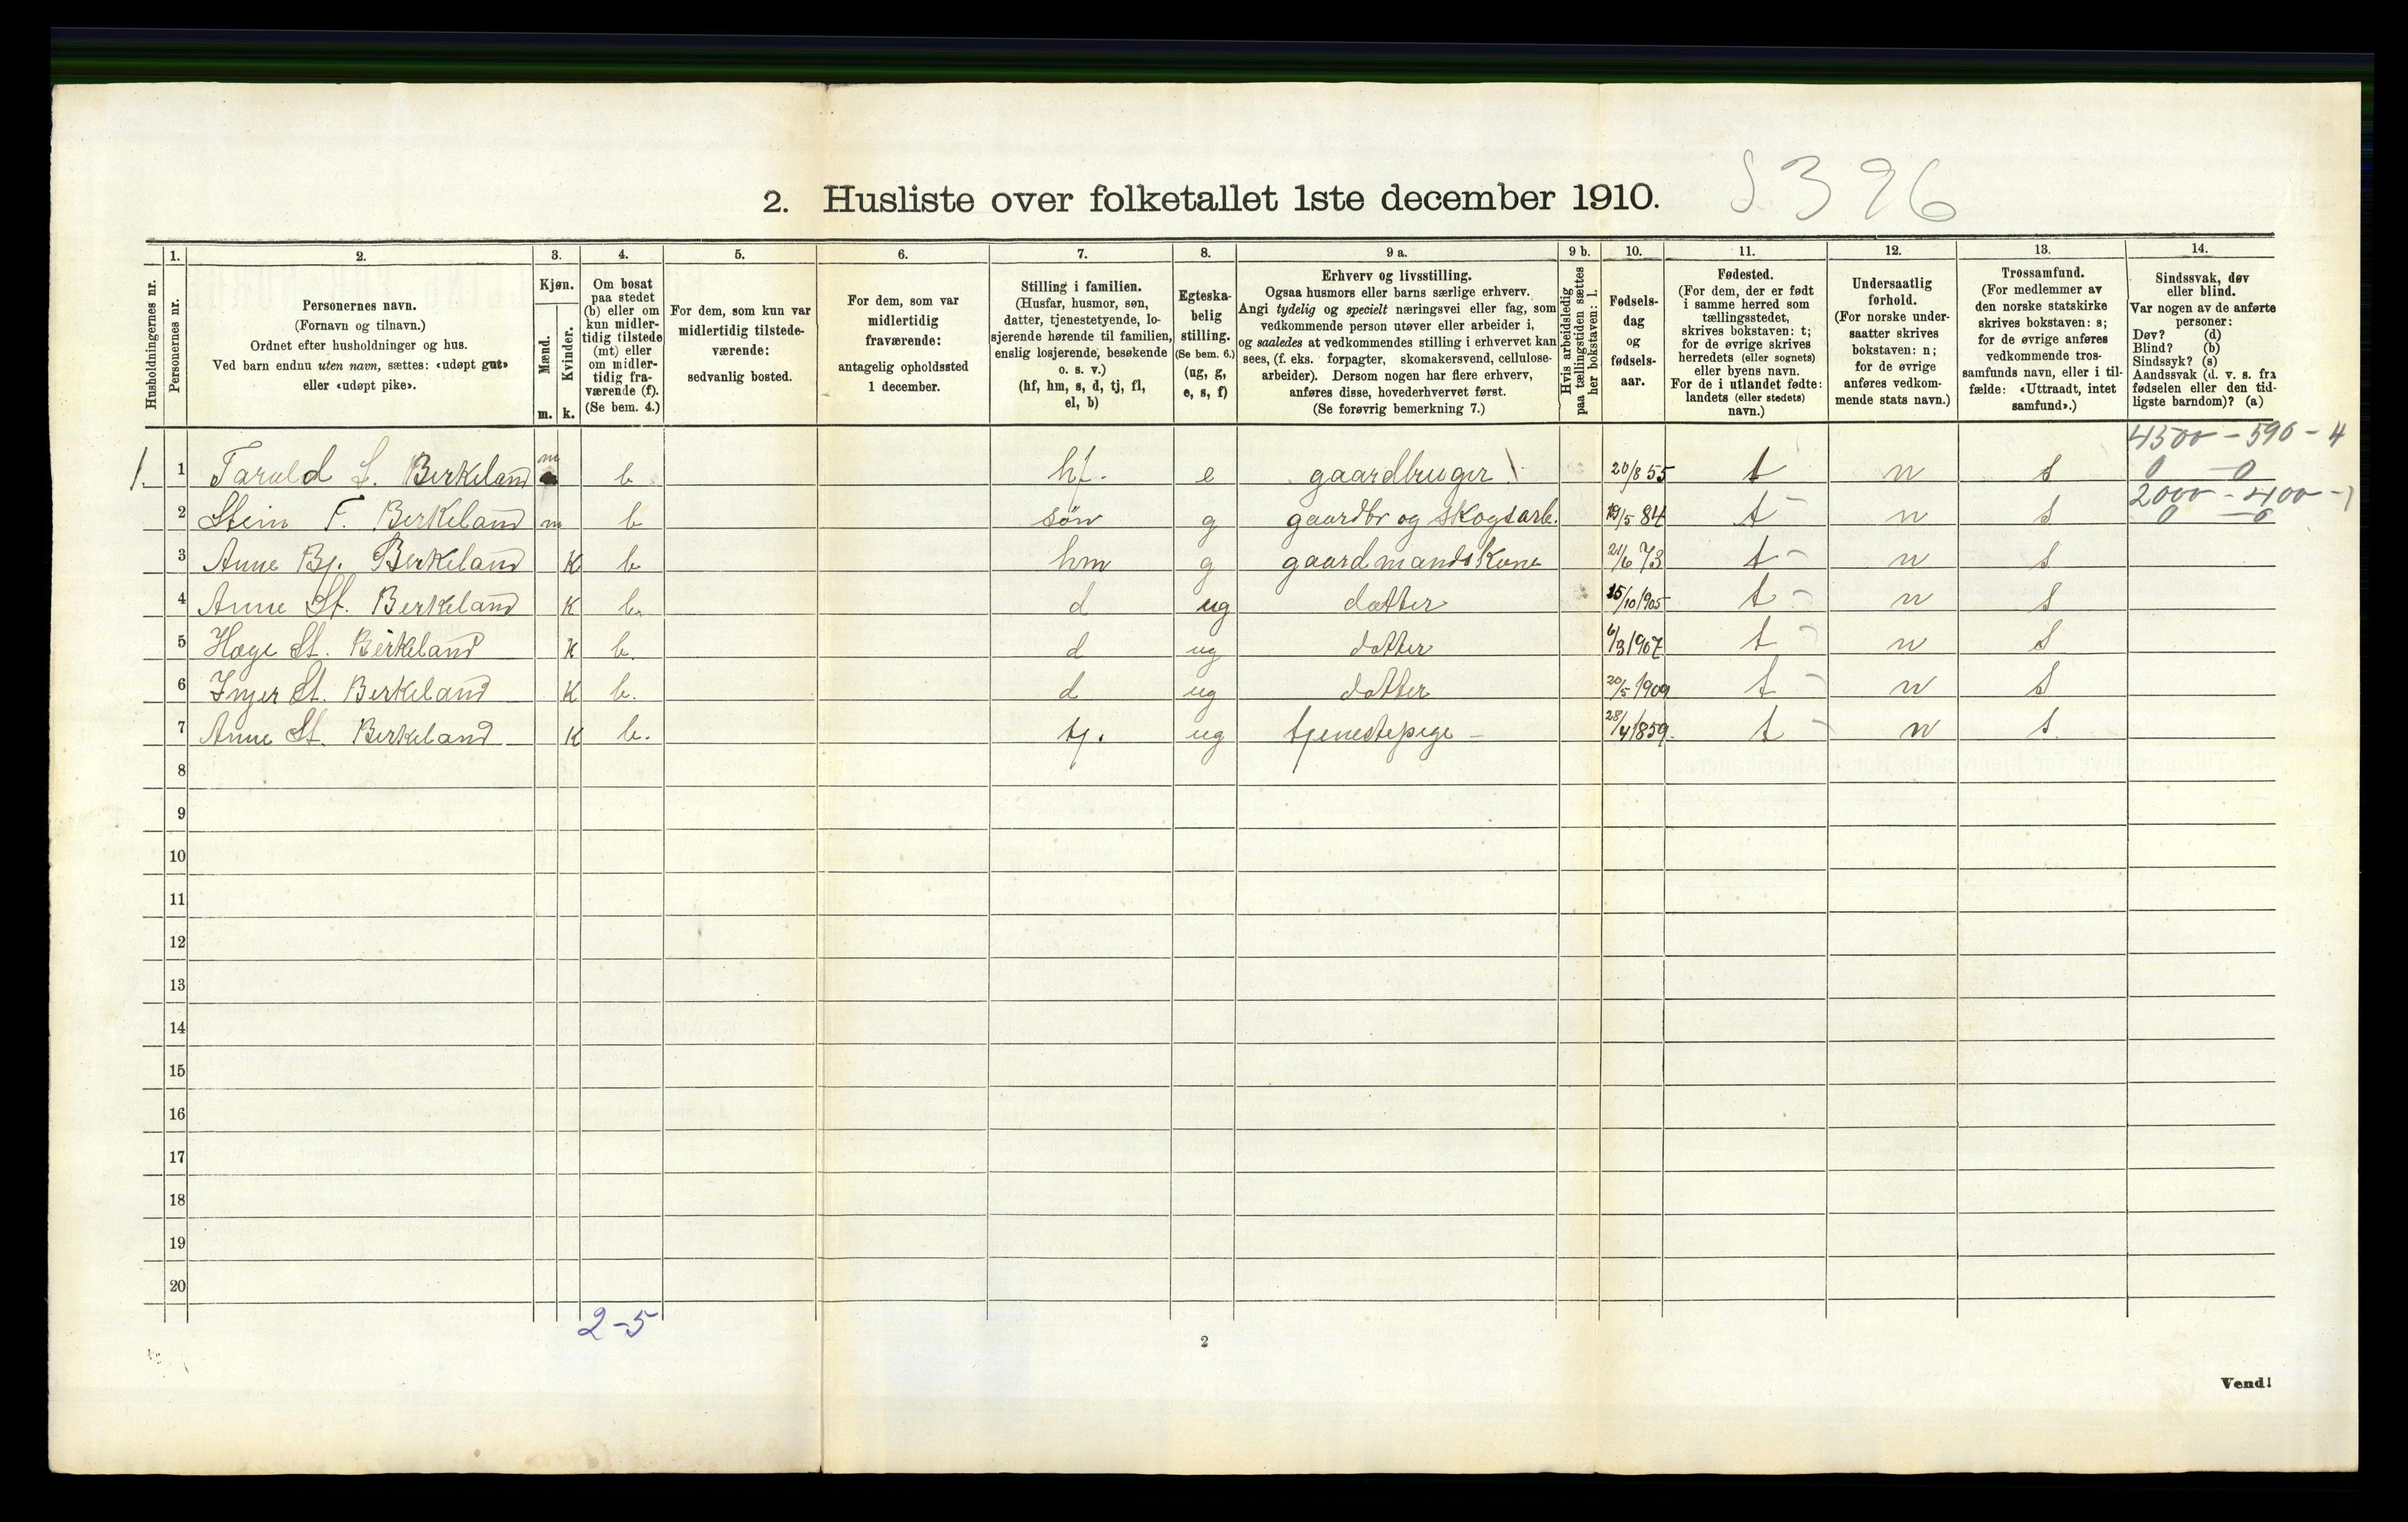 2. Husliste over folketallet 1ste december 1910. S 396
Husholdningernes nr.
1. Personernes nr.
2. Personernes navn.
(Fornavn og tilnavn.)
Ordnet efter husholdninger og hus.
Ved barn endnu uten navn, sættes: «udøpt gut»
eller «udøpt pike».
3. Kjøn.
Mænd. m.
Kvinder. k.
4. Om bosat
paa stedet
(b) eller om
kun midler-
tidig tilstede
(mt) eller
om midler-
tidig fra-
værende (f).
(Se bem. 4.)
5. For dem, som kun var
midlertidig tilstede-
værende:
sedvanlig bosted.
6. For dem, som var
midlertidig
fraværende:
antagelig opholdssted
1 december.
7. Stilling i familien.
(Husfar, husmor, søn,
datter, tjenestetyende, lo-
sjerende hørende til familien,
enslig losjerende, besøkende
o. s. v.)
(hf, hm, s, d, tj, fl,
el, b)
8. Egteska-
belig
stilling.
(Se bem. 6.)
(ug, g,
e, s, f)
9 a. Erhverv og livsstilling.
Ogsaa husmors eller barns særlige erhverv.
Angi tydelig og specielt næringsvei eller fag, som
vedkommende person utøver eller arbeider i,
og saaledes at vedkommendes stilling i erhvervet kan
sees, (f. eks. forpagter, skomakersvend, cellulose-
arbeider). Dersom nogen har flere erhverv,
anføres disse, hovederhvervet først.
(Se forøvrig bemerkning 7.)
9 b. Hvis arbeidsledig
paa tællingstiden sættes
her bokstaven: l.
10. Fødsels-
dag
og
fødsels-
aar.
11. Fødested.
(For dem, der er født
i samme herred som
tællingsstedet,
skrives bokstaven: t;
for de øvrige skrives
herredets (eller sognets)
eller byens navn.
For de i utlandet fødte:
landets (eller stedets)
navn.)
12. Undersaatlig
forhold.
(For norske under-
saatter skrives
bokstaven: n;
for de øvrige
anføres vedkom-
mende stats navn.)
13. Trossamfund.
(For medlemmer av
den norske statskirke
skrives bokstaven: s;
for de øvrige anføres
vedkommende tros-
samfunds navn, eller i til-
fælde: «Uttraadt, intet
samfund».)
14. Sindssvak, døv
eller blind.
Var nogen av de anførte
personer:
Døv? (d)
Blind? (b)
Sindssyk? (s)
Aandssvak (d. v. s. fra
fødselen eller den tid-
ligste barndom)? (a)
4500 - 590 - 4
1. 1 Tarald S. Berkeland m b hf. e gaardbruger 20/8 55 t n s 0 - 0
2000 - 400 - 1
2 Stein T. Berkeland m b søn g gaardbr og skogsarb. 19/5 84 t n s 0 - 0
3 Anne Bj. Berkeland K b hm g gaardmandskone 21/6 73 t n s
4 Anne St. Berkeland K b. d ug datter 15/10 1905 t n s
5 Hæge St. Berkeland K b. d ug datter 6/3 1907 t n s
6 Inger St. Berkeland K b. d ug datter 20/5 1909 t n s
7 Anne St. Berkeland K b. tj. ug tjenestepige - 28/4 1859. t n s
8
9
10
11
12
13
14
15
16
17
18
19
20
2-5
2
Vend!